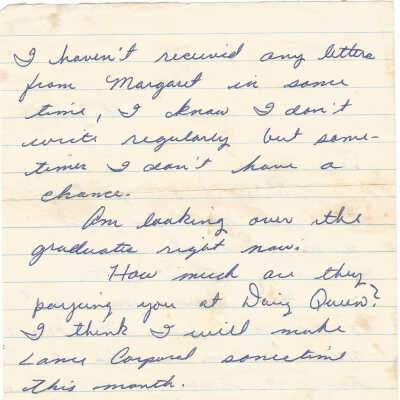 I haven't received any letters
from Margaret in some
time, I know I don't
write regularly but some-
times I don't have a
chance.
Am looking over the
graduate right now.
How much are they
paying you at Dairy Queen?
I think I will make
Lance Corporal sometime
this month.